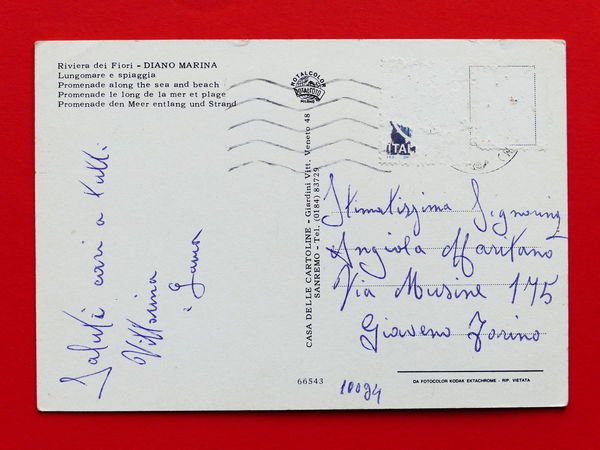 Riviera dei Fiori - DIANO MARINA
Lungomare e spiaggia
Promenade along the sea and beach
Promenade le long de la mer et plage
Promenade den Meer entlang und Strand
ROTALCOLOR
ROTALFOTO
MILANO
ITAL
CASA DELLE CARTOLINE - Giardini Vitt. Veneto 48
SANREMO - Tel. (0184) 83729
Saluti cari a tutti
Vittorina
Stimatissima Signorina
Angiola Maritano
Via Musine 175
Giaveno Torino
66543
10094
DA FOTOCOLOR KODAK EKTACHROME - RIP. VIETATA